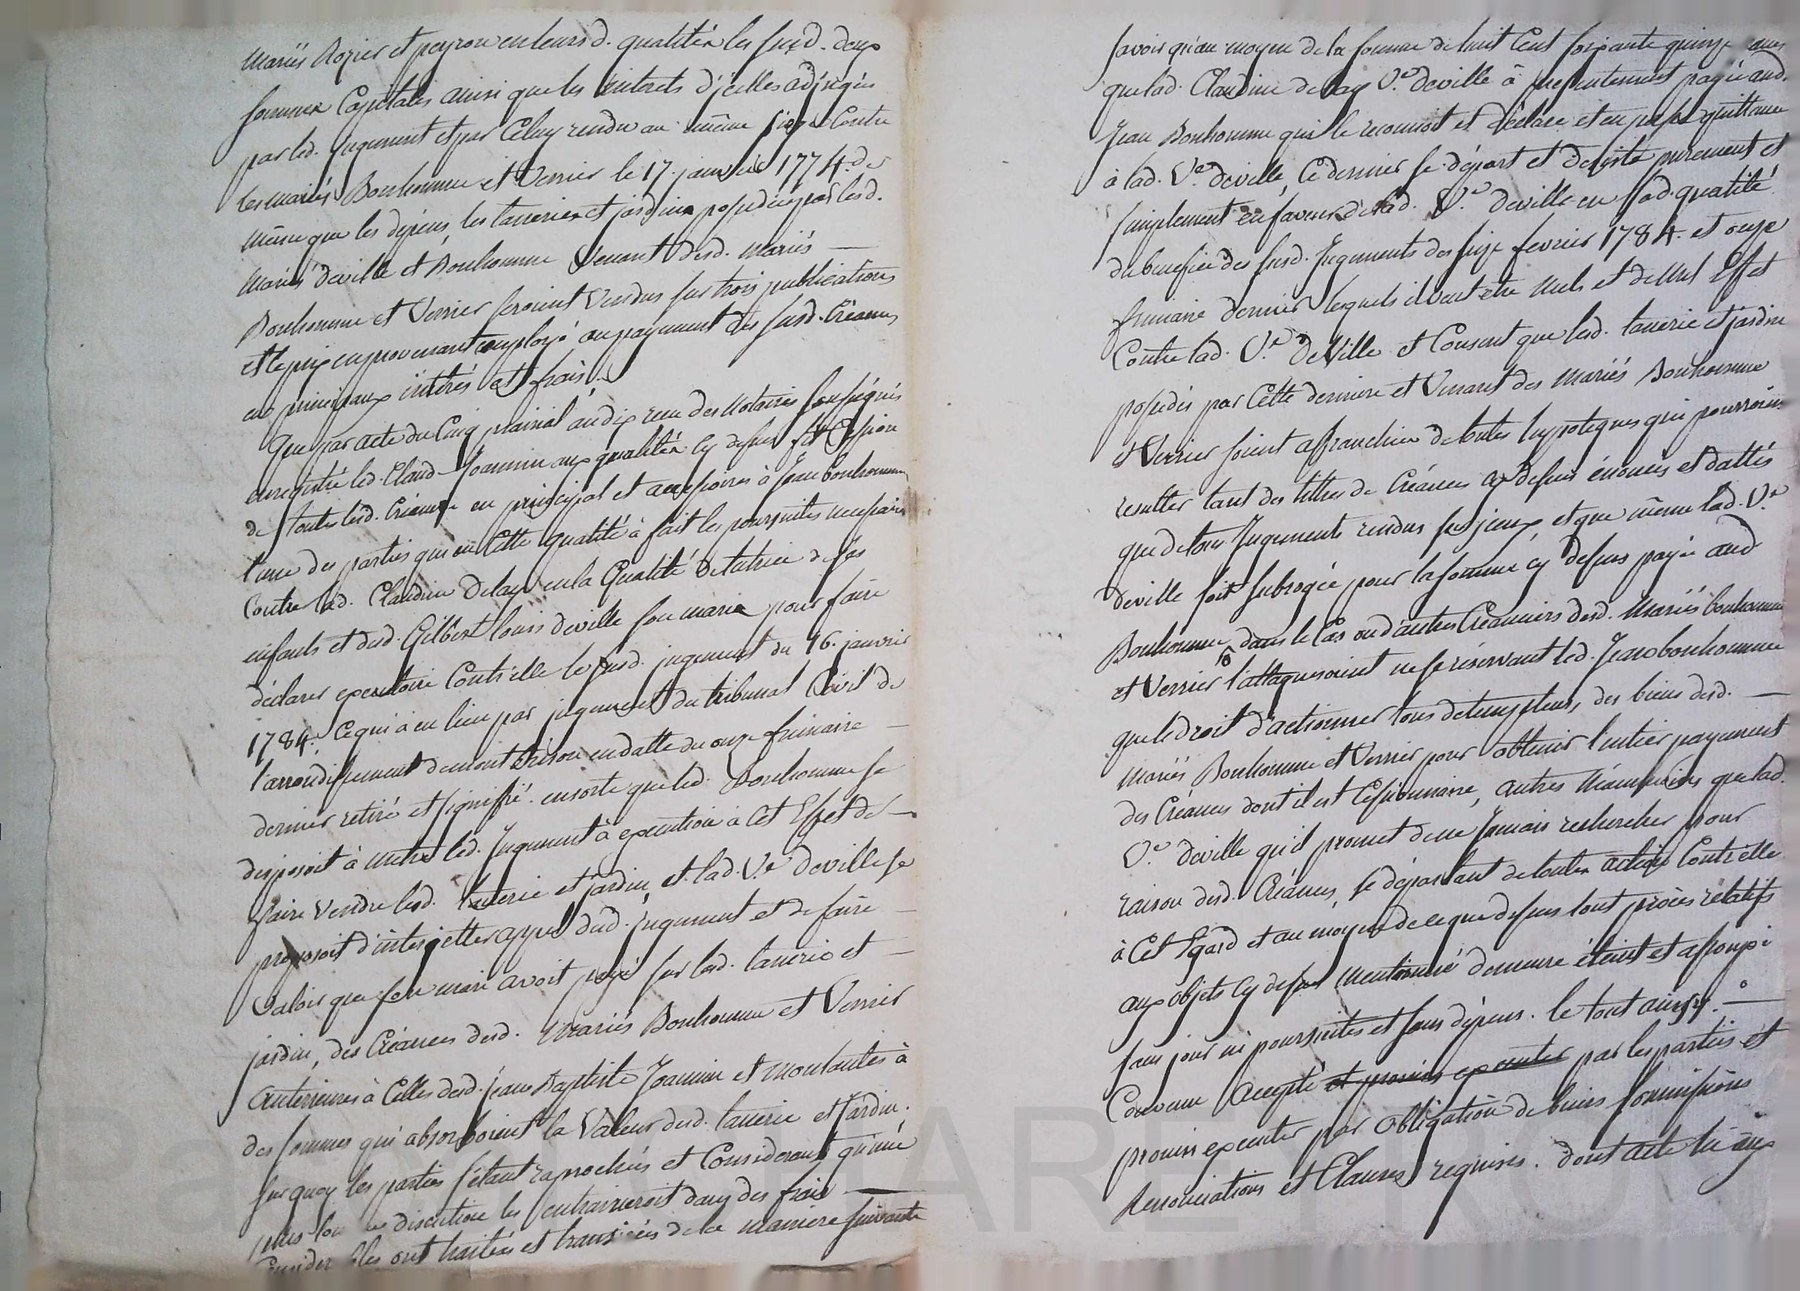 mariés Rozier et peyron en leursd. qualités les susd. deux
sommes Capitales ainsi que les interets d'jcelles adjugés
par led. jugement et par Celuy rendu au même siege Contre
les mariés Bonhomme et Verrier le 17. janvier 1774. de
même que les dépens, les tanneries et jardins possedés par lesd.
mariés deville et Bonhomme Venant desd. mariés
Bonhomme et Verrier seroient Vendus sur trois publications
et le prix en provenant employé au payement des susd. Créances
en principaux intérês et frais.
Que par acte du Cinq prairial an dix reçu des Notaires soussignés
enregistré led. Claud. Joannin aux qualités cy dessus fit Cession
de toutes lesd. Créances en principal et accessoires à Jean bonhomme
l'une des parties qui en Cette qualité à fait les poursuites necessaires
Contre lad. Claudine Delay en la Qualité de tutrice de ses
enfants et dud. Gilbert louis deville son mari pour faire
déclarer executoire Contr'elle le susd. jugement du 16. janvier
1784. Ce qui à eu lieu par jugement du tribunal Civil de
l'arrondissement de montbrison en datte du onze frimaire
dernier retiré et signiffié. ensorte que led. Bonhomme se
disposoit à mettre led. Jugement à execution à Cet Effet de
faire Vendre lesd. tannerie et jardin, et lad. V.e deville se
proposoit d'interjetter appel dud. jugement et de faire
Valoir que feu mari avoit payé sur lad. tannerie et
jardin, des Créances desd. mariés Bonhomme et Verrier
anterieures à Celles dud. jean Baptiste Joannin et montantes à
des sommes qui absorboient la Valeur desd. tannerie et jardin.
sur quoy les parties s'étant raprochées et Considerant qu'une
plus discution les entrainneroit dans des frais
Elles ont traitées et transigées de la maniere suivante
savoir qu'au moyen de la somme de huit Cent soixante quinze
que lad. Claudine Delay V.e Deville à presentement payé aud.
Jean Bonhomme qui le reconnoit et déclare et en passe quittance
à lad. V.e deville, Ce dernier se départ et désiste purement et
simplement en faveur de lad. V.e deville en sad qualité
du benefice des susd. Jugements des seize fevrier 1784. et onze
frimaire dernier lesquels il veut etre nuls et de nul Effet
Contre lad. V.e De Ville et Consent que lesd. tannerie et jardin
possedés par Cette derniere et Venant des mariés Bonhomme
et Verrier soient affranchies de toutes hypoteques qui pourroient
resulter tant des titres de Créances cy dessus énoncés et dattés
que de tous Jugements rendus sur jceux, et que même lad. V.e
deville soit subrogée pour la somme cy dessus payée aud
Bonhomme, dans le Cas ou d'autres Créanciers desd. mariés bonhomme
et Verrier l'attaqueroient ne se réservant led. Jean bonhomme
que le droit d'actionner tous detempteurs, des biens desd.
mariés Bonhomme et Verrier pour obtenir l'entier payement
des Créances dont il est Cessionnaire, autres néanmoins que lad.
V.e deville qu'il promet de ne jamais rechercher pour
raison desd. Créances, se départant de toutes actions Contr'elle
à Cet Egard et au moyen de ce que dessus tout procès relatifs
aux objets cy dessus mentionné demeure éteint et assoupi
sans jour ni poursuites et sans dépens. le tout ainsy.
Convenu accepté et promis executer par les parties et
promis executer par obligation de biens soumissions
Renonciations et Clauses requises. dont acte lu aux